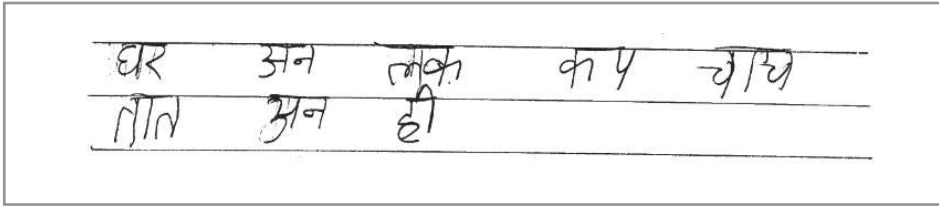 घर अन लक कप चाय
तात अन ही